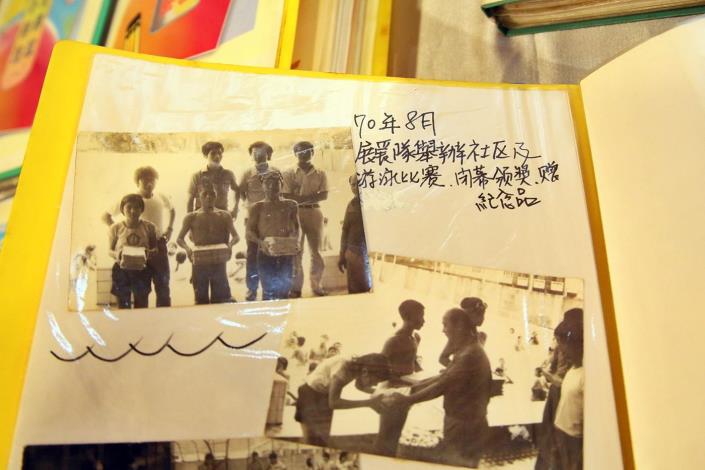 70年8月
展望隊舉辦社区及
游泳比賽.閉幕领獎.贈
紀念品